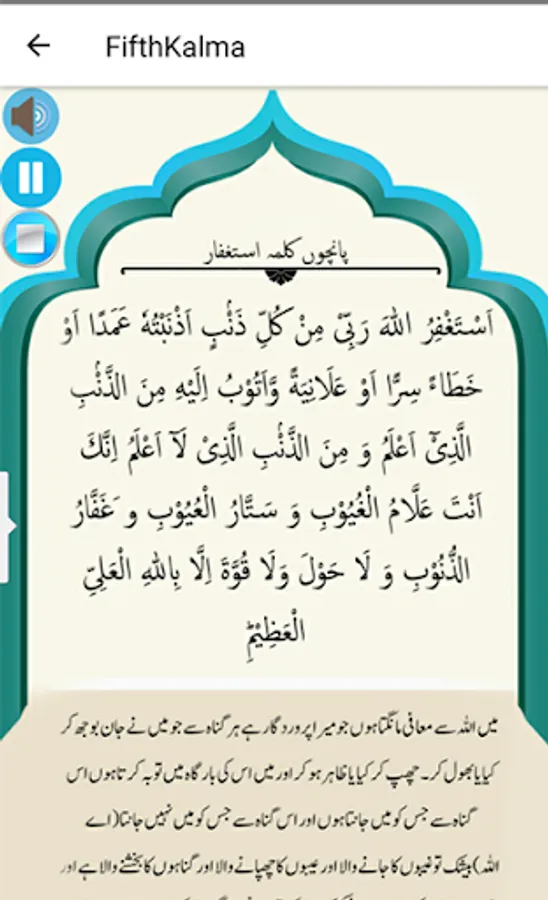 FifthKalma
پانچوں کلمہ استغفار
اَسْتَغْفِرُ اللهَ رَبِّیْ مِنْ كُلِّ ذَنْۢبٍ اَذْنَبْتُهٗ عَمَدًا اَوْ
خَطَاءً سِرًّا اَوْ عَلَانِيَةً وَّاَتُوْبُ اِلَيْهِ مِنَ الذَّنْۢبِ
الَّذِیْۤ اَعْلَمُ وَ مِنَ الذَّنْۢبِ الَّذِیْ لَاۤ اَعْلَمُ اِنَّكَ
اَنْتَ عَلَّامُ الْغُيُوْبِ وَ سَتَّارُ الْعُيُوْبِ و َغَفَّارُ
الذُّنُوْبِ وَ لَا حَوْلَ وَلَا قُوَّةَ اِلَّا بِاللهِ الْعَلِیِّ
الْعَظِيْمِؕ
میں اللہ سے معافی مانگتا ہوں جو میرا پروردگار ہے ہر گناہ سے جو میں نے جان بوجھ کر
کیا یا بھول کر۔ چھپ کر کیا یا ظاہر ہو کر اور میں اس کی بارگاہ میں توبہ کرتا ہوں اس
گناہ سے جس کو میں جانتا ہوں اور اس گناہ سے جس کو میں نہیں جانتا (اے
اللہ) بیشک تو غیبوں کا جانے والا اور عیبوں کا چھپانے والا اور گناہوں کا بخشنے والا ہے اور